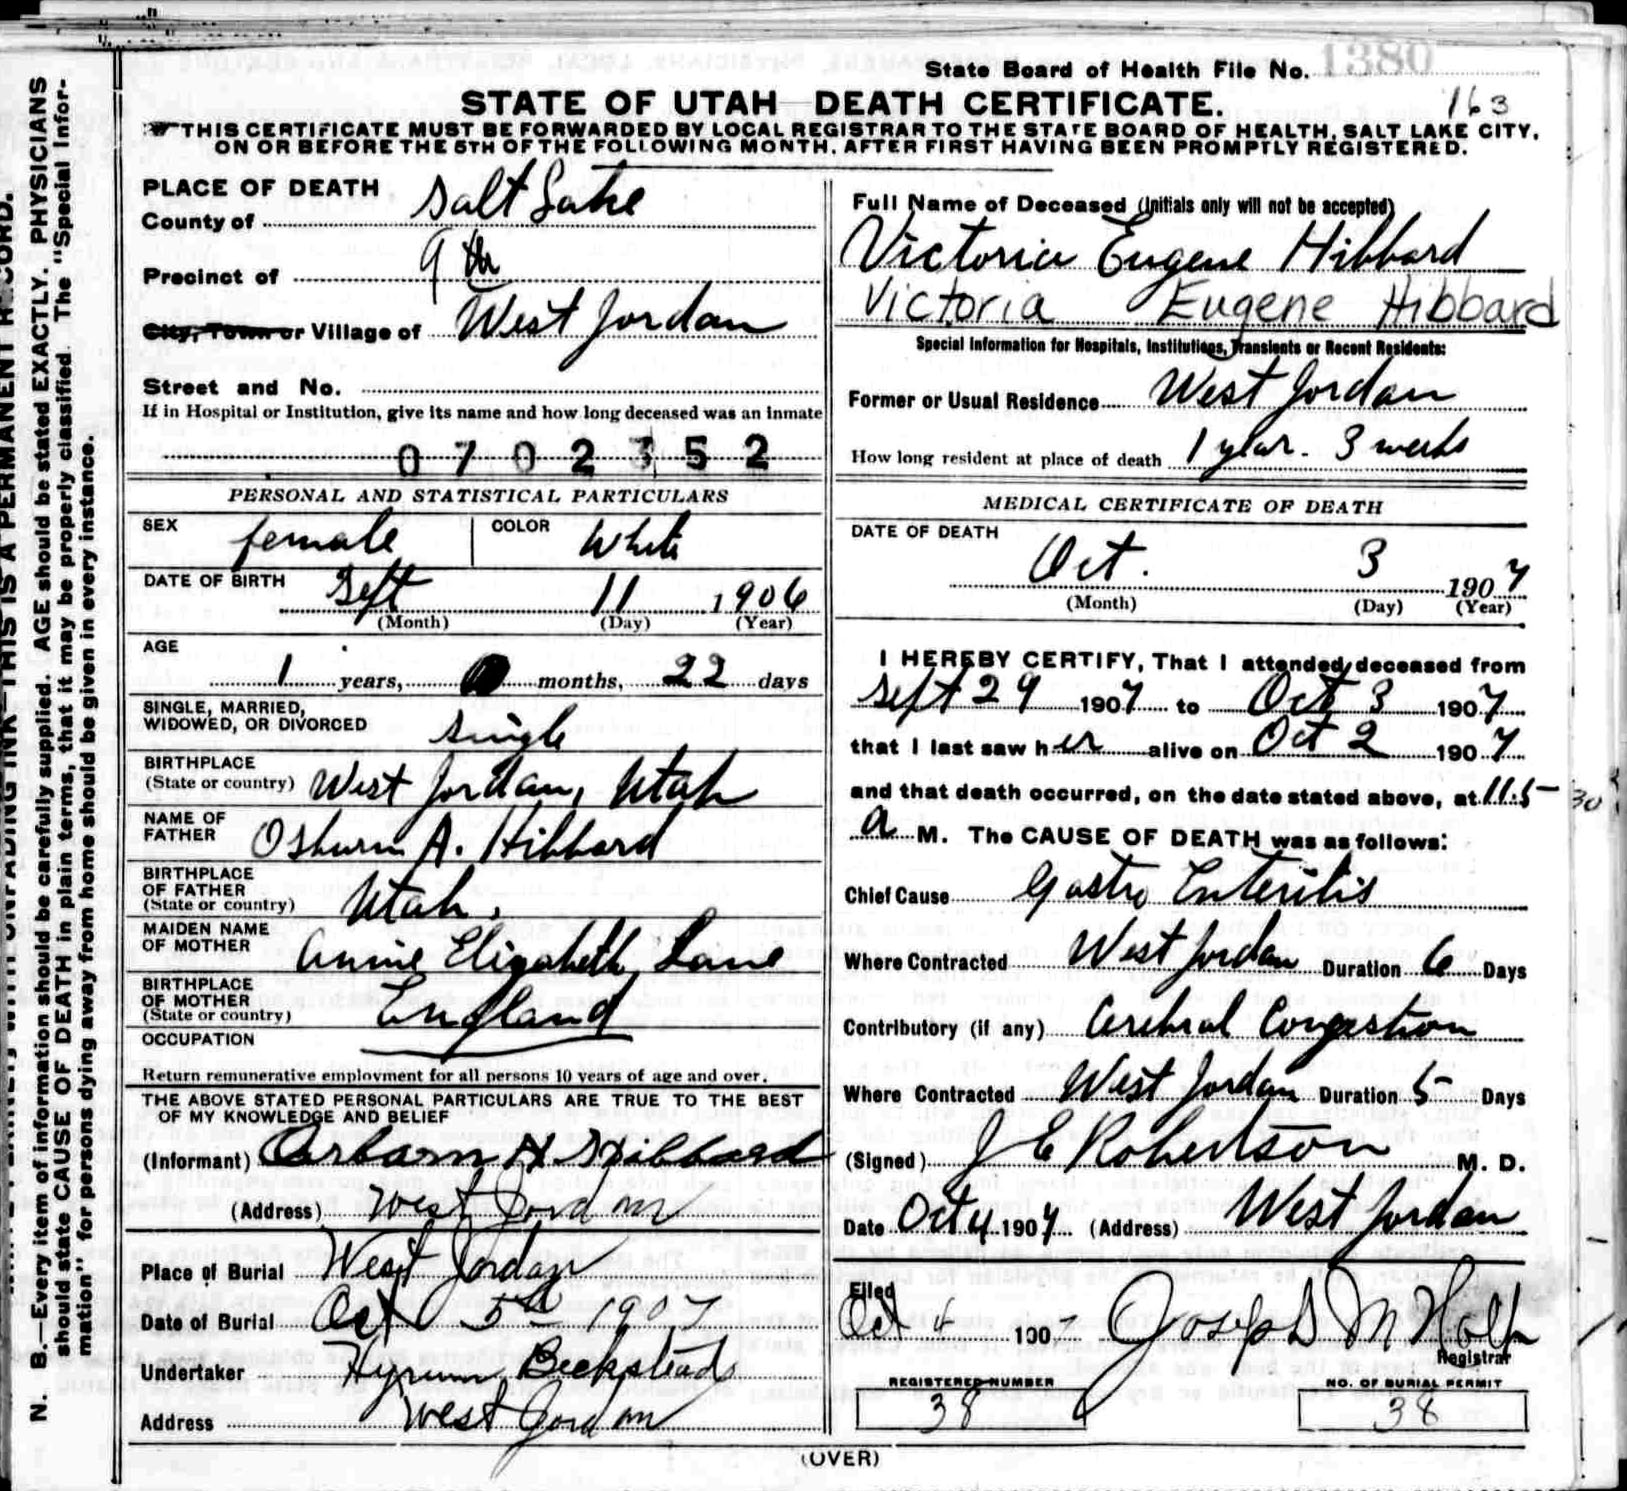 State Board of Health File No. 1380
163
STATE OF UTAH DEATH CERTIFICATE.
THIS CERTIFICATE MUST BE FORWARDED BY LOCAL REGISTRAR TO THE STATE BOARD OF HEALTH, SALT LAKE CITY,
ON OR BEFORE THE 5TH OF THE FOLLOWING MONTH, AFTER FIRST HAVING BEEN PROMPTLY REGISTERED.
N. B.—Every item of information should be carefully supplied. AGE should be stated EXACTLY. PHYSICIANS
should state CAUSE OF DEATH in plain terms, that it may be properly classified. The "Special Infor-
mation" for persons dying away from home should be given in every instance.
PLACE OF DEATH
County of Salt Lake
Precinct of 9th
City, Town or Village of West Jordan
Street and No.
If in Hospital or Institution, give its name and how long deceased was an inmate
0702352
PERSONAL AND STATISTICAL PARTICULARS
SEX female COLOR White
DATE OF BIRTH Sept 11 1906
(Month) (Day) (Year)
AGE
1 years, months, 22 days
SINGLE, MARRIED,
WIDOWED, OR DIVORCED single
BIRTHPLACE
(State or country) West Jordan, Utah
NAME OF
FATHER Osburn A. Hibbard
BIRTHPLACE
OF FATHER
(State or country) Utah.
MAIDEN NAME
OF MOTHER Annie Elizabeth Lane
BIRTHPLACE
OF MOTHER
(State or country) England
OCCUPATION
Return remunerative employment for all persons 10 years of age and over.
THE ABOVE STATED PERSONAL PARTICULARS ARE TRUE TO THE BEST
OF MY KNOWLEDGE AND BELIEF
(Informant) H Hibbard
(Address) West Jordan
Place of Burial West Jordan
Date of Burial Oct 5th 1907
Undertaker Hyrum Beckstead
Address West Jordan
Full Name of Deceased (Initials only will not be accepted)
Victoria Eugene Hibbard
Victoria Eugene Hibbard
Special Information for Hospitals, Institutions, Transients or Recent Residents:
Former or Usual Residence West Jordan
How long resident at place of death 1 year. 3 weeks
MEDICAL CERTIFICATE OF DEATH
DATE OF DEATH
Oct. 3 1907
(Month) (Day) (Year)
I HEREBY CERTIFY, That I attended deceased from
Sept 29 1907 to Oct 3 1907
that I last saw her alive on Oct 2 1907
and that death occurred, on the date stated above, at 11:5 30
a M. The CAUSE OF DEATH was as follows:
Chief Cause Gastro Enteritis
Where Contracted West Jordan Duration 6 Days
Contributory (if any) Cerebral Congestion
Where Contracted West Jordan Duration 5 Days
(Signed) J E Robertson M. D.
Date Oct 4 1907 (Address) West Jordan
Filed
Oct 4 1907 Joseph M Holt
Registrar
REGISTERED NUMBER
38
NO. OF BURIAL PERMIT
38
(OVER)